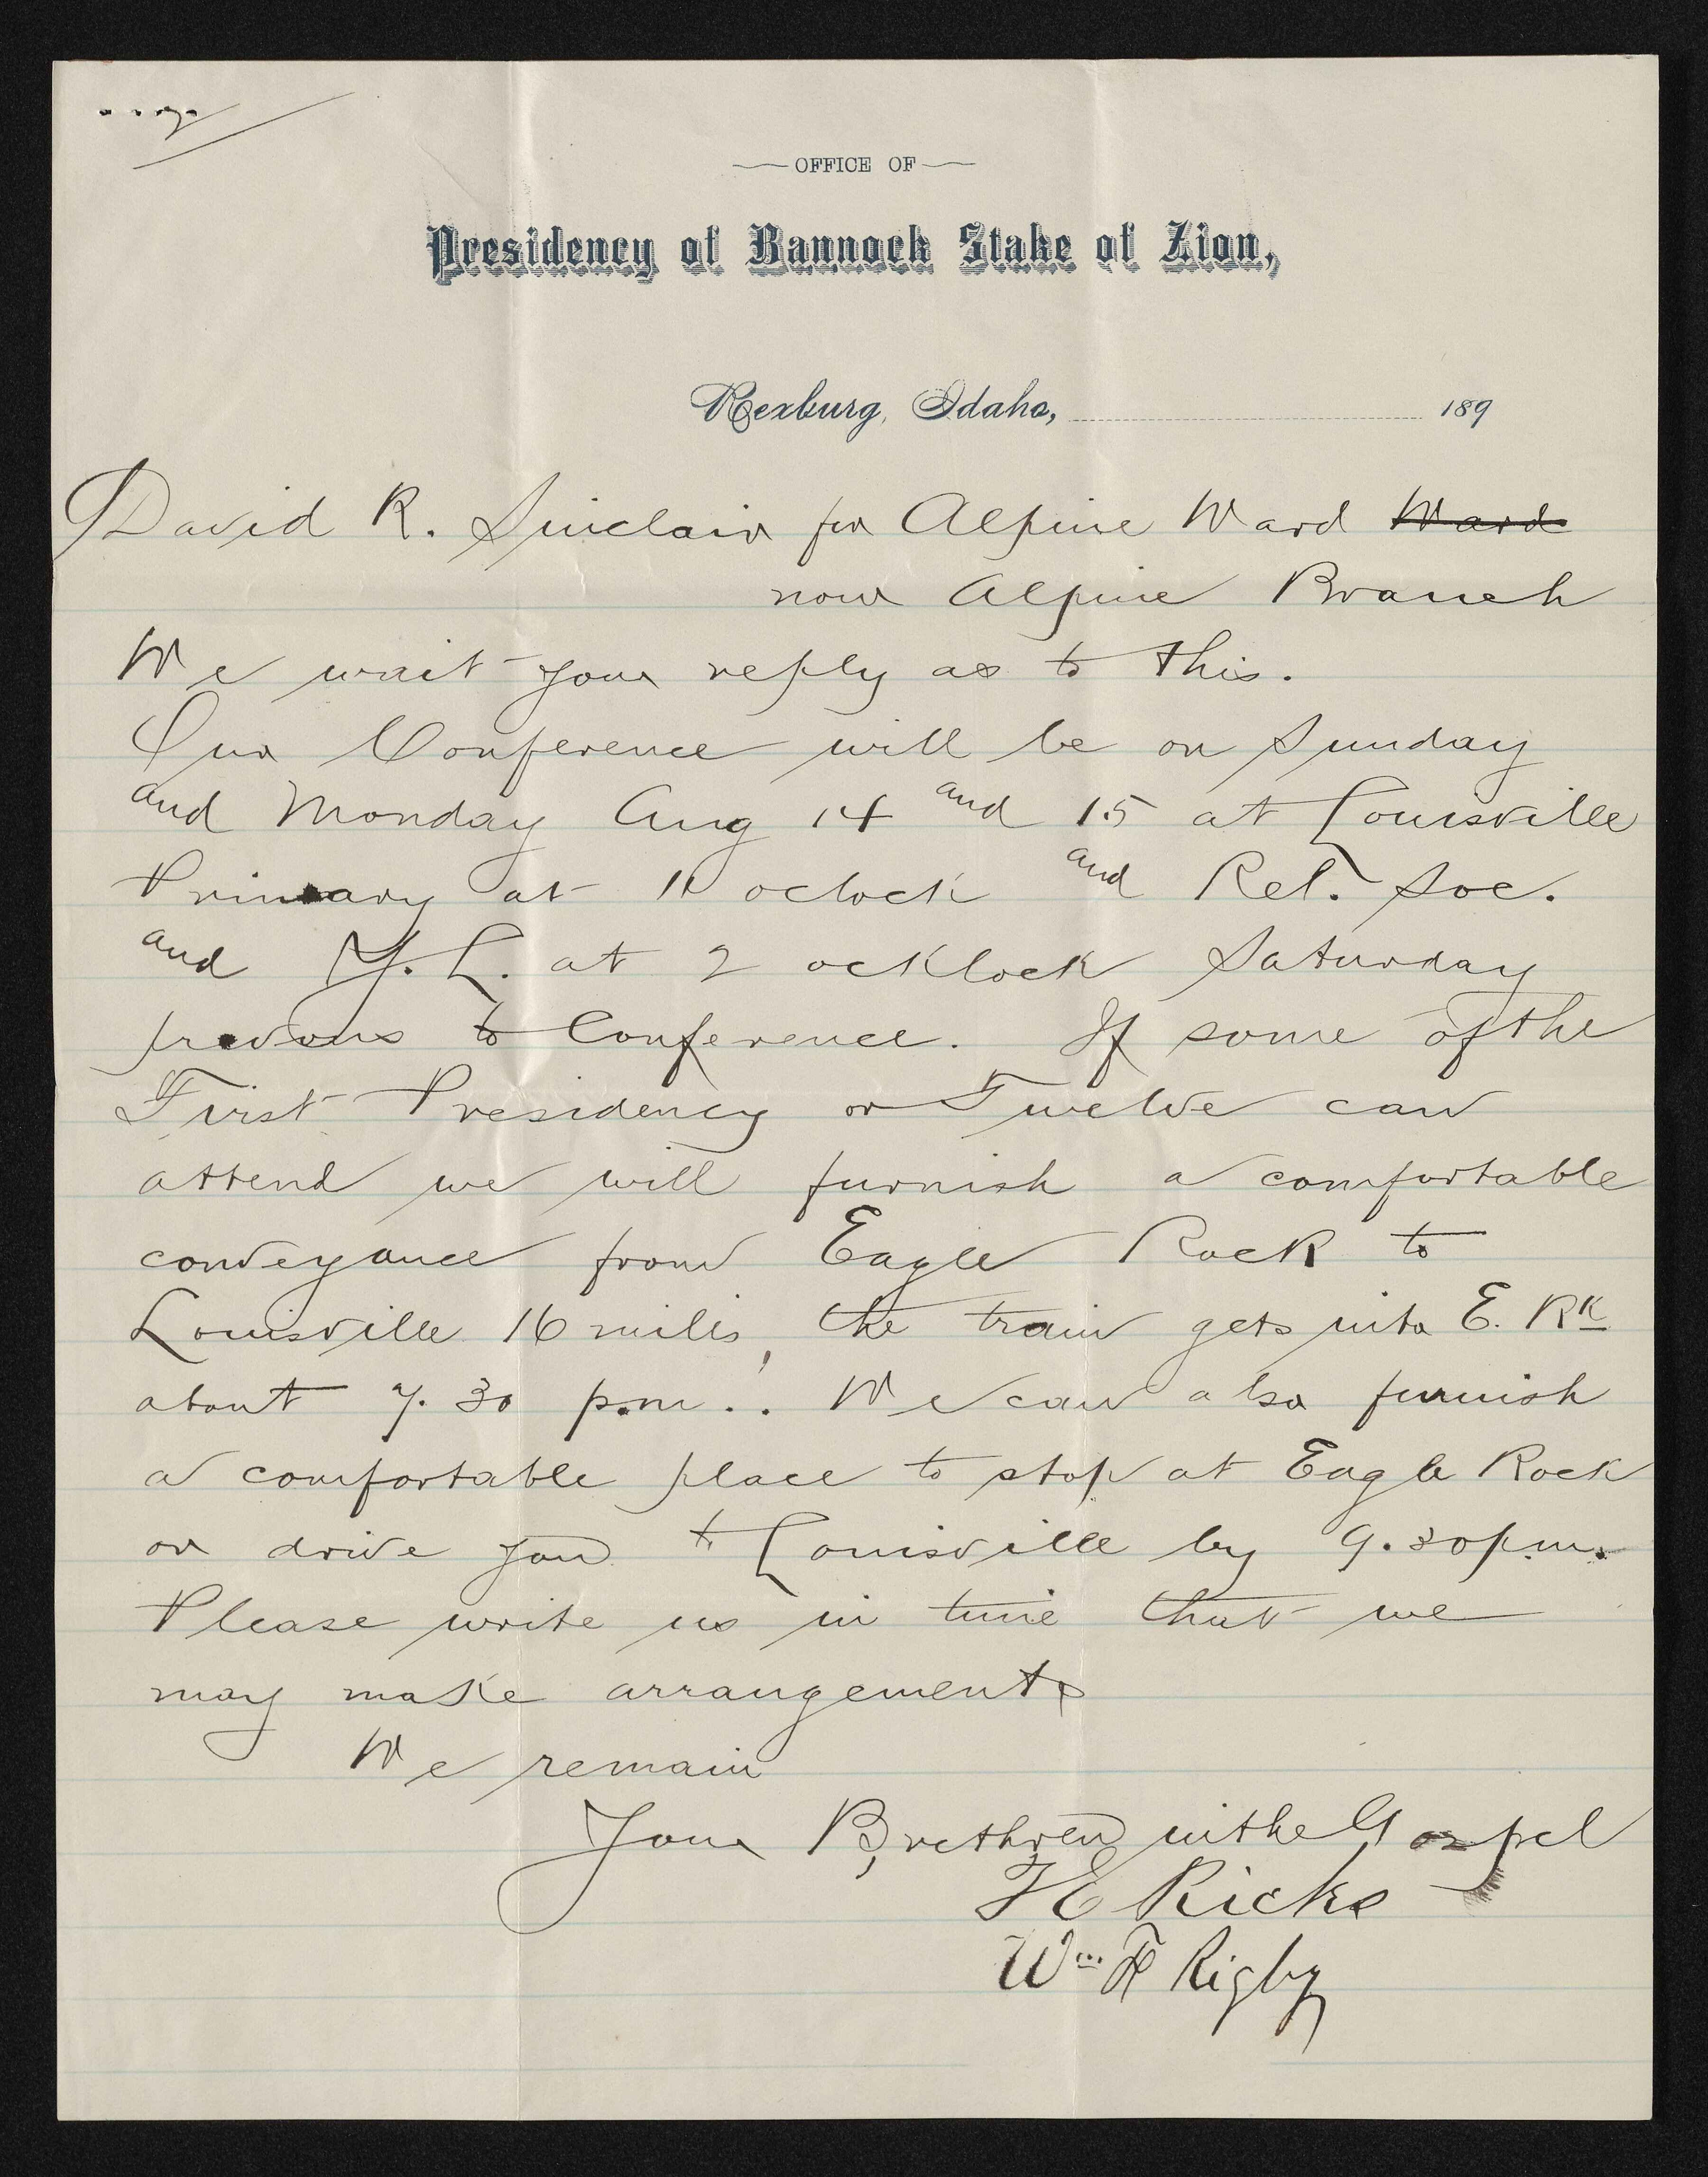 OFFICE OF
Presidency of Bannock Stake of Zion,
Rexburg, Idaho, 189
David R. Sinclair for Alpine Ward Ward
now Alpine Branch
We wait your reply as to this.
Our Conference will be on Sunday
and Monday Aug 14 and 15 at Louisville
Primary at 10 oclock and Rel. Soc.
and Y. L. at 2 ocklock Saturday
previous to Conference. If some of the
First Presidency or Twelve can
attend we will furnish a comfortable
conveyance from Eagle Rock to
Louisville 16 miles, the train gets into E. Rk
about 7.30 p.m.. We can also furnish
a comfortable place to stop at Eagle Rock
or drive you to Louisville by 9.30 p.m.
Please write us in time that we
may make arrangements
We remain
Your Brethren in the Gospel
T E Ricks
Wm F Rigby